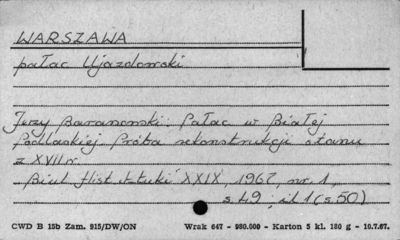 WARSZAWA
pałac Ujazdowski
Jerzy Baranowski: Pałac w Białej
Podlaskiej. Próba rekonstrukcji stanu
z XVII w.
Biul. Hist. Sztuki XXIX, 1967, nr 1,
s. 49; il 1 (s. 50)
CWD B 15b Zam. 915/DW/ON Wrak 647 - 980.000 - Karton 5 kl. 180 g - 10.7.67.